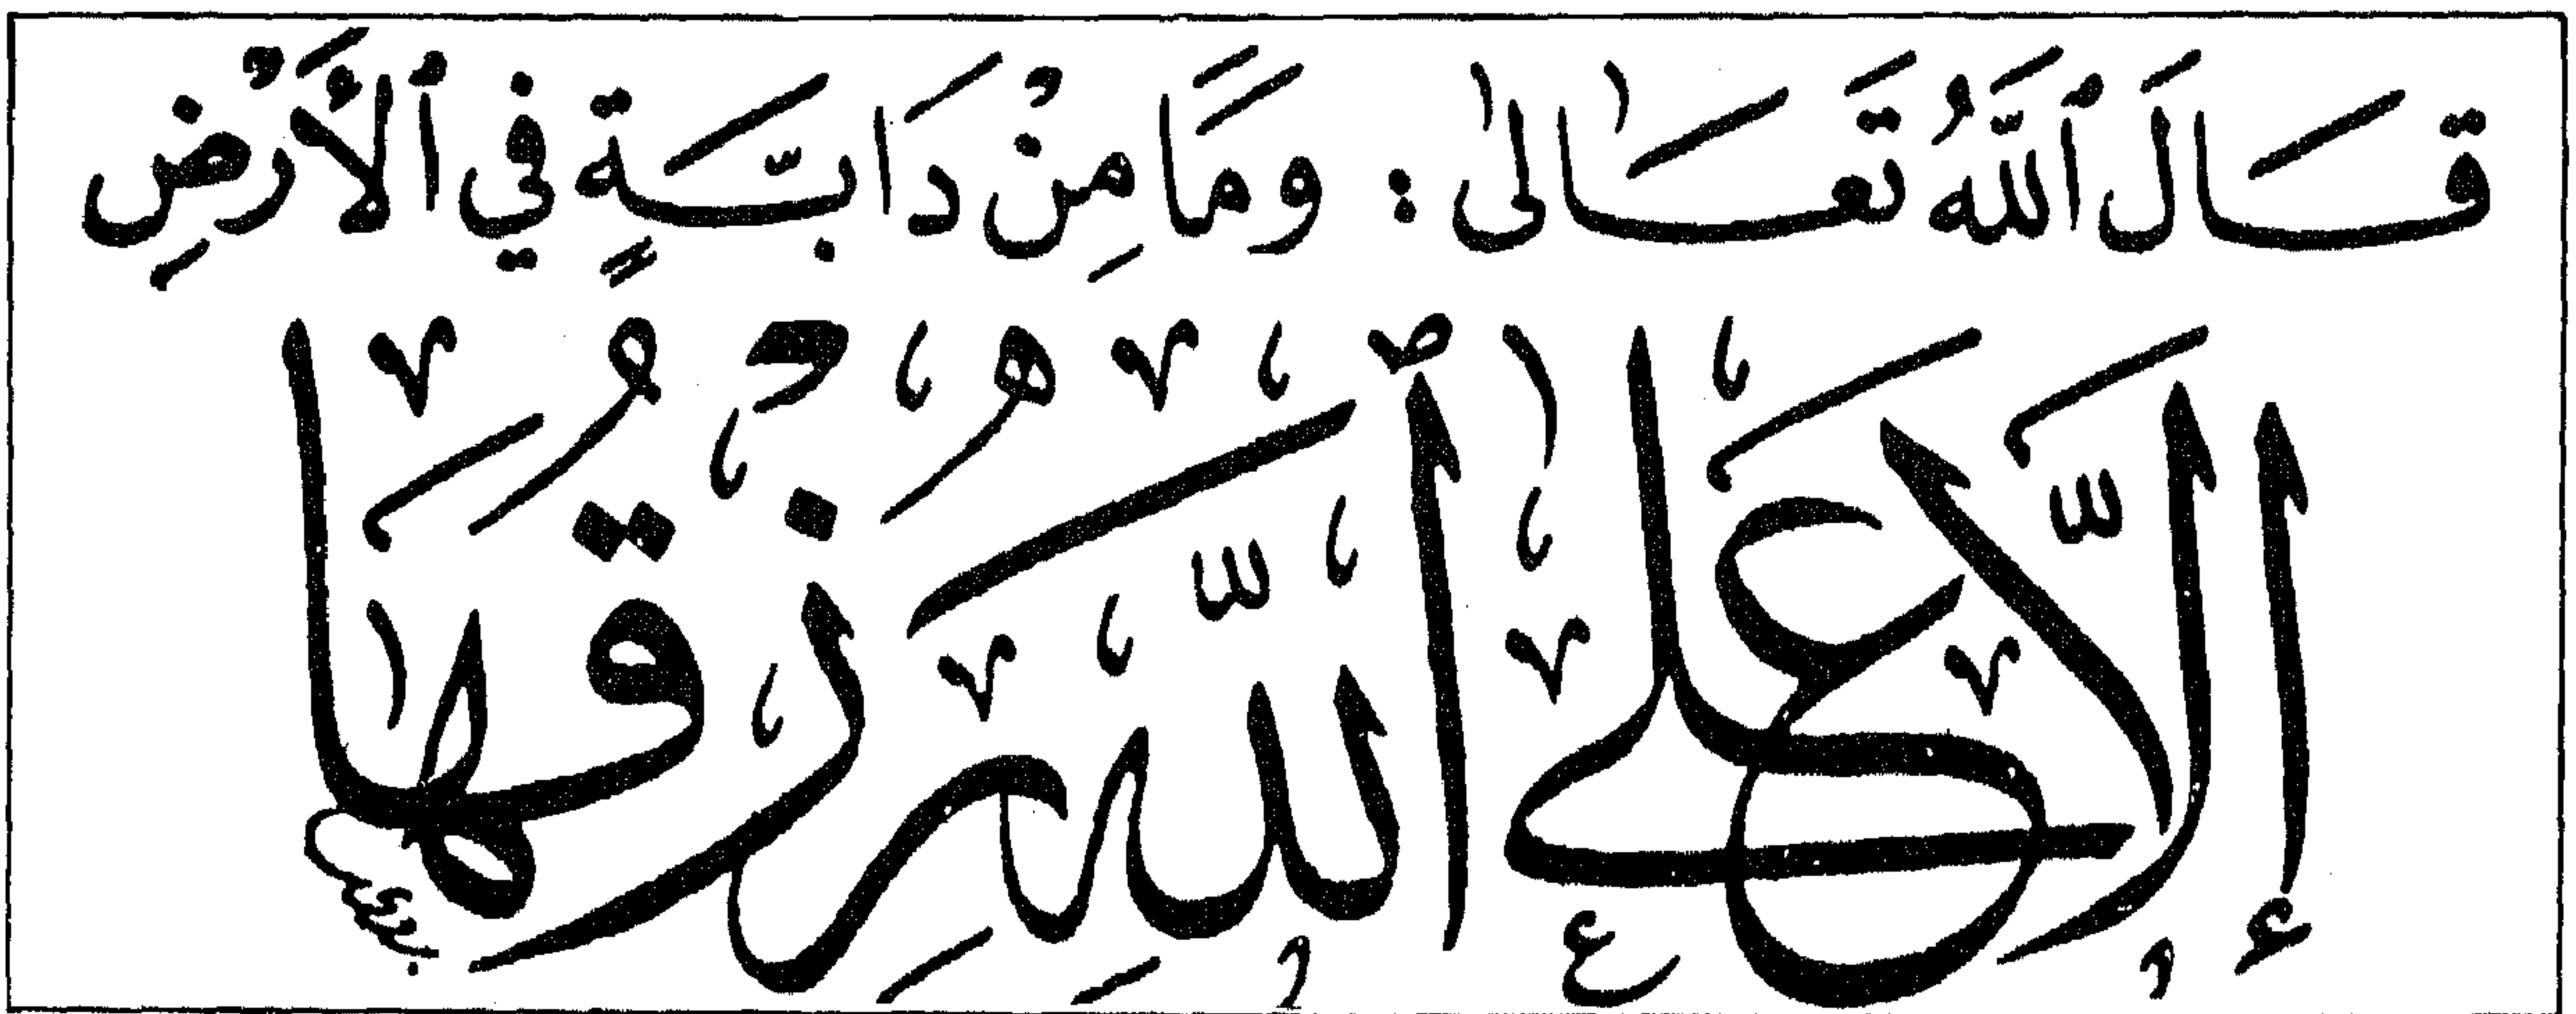 قَالَ ٱللَّهُ تَعَالَىٰ : وَمَا مِنْ دَابَّةٍ فِي ٱلْأَرْضِ
إِلَّا عَلَى ٱللَّهِ رِزْقُهَا